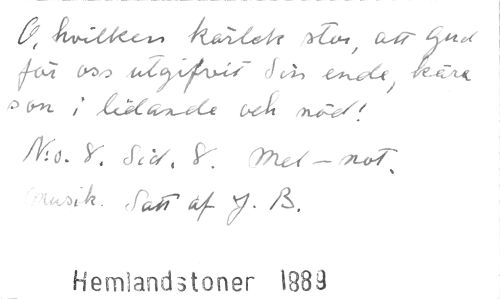 O, hvilken kärlek stor, att Gud
för oss utgifvit Sin ende, kära
son i lidande och nöd!
N:o. 8. Sid. 8. Mel-not.
Musik. Satt af J. B.
Hemlandstoner 1889